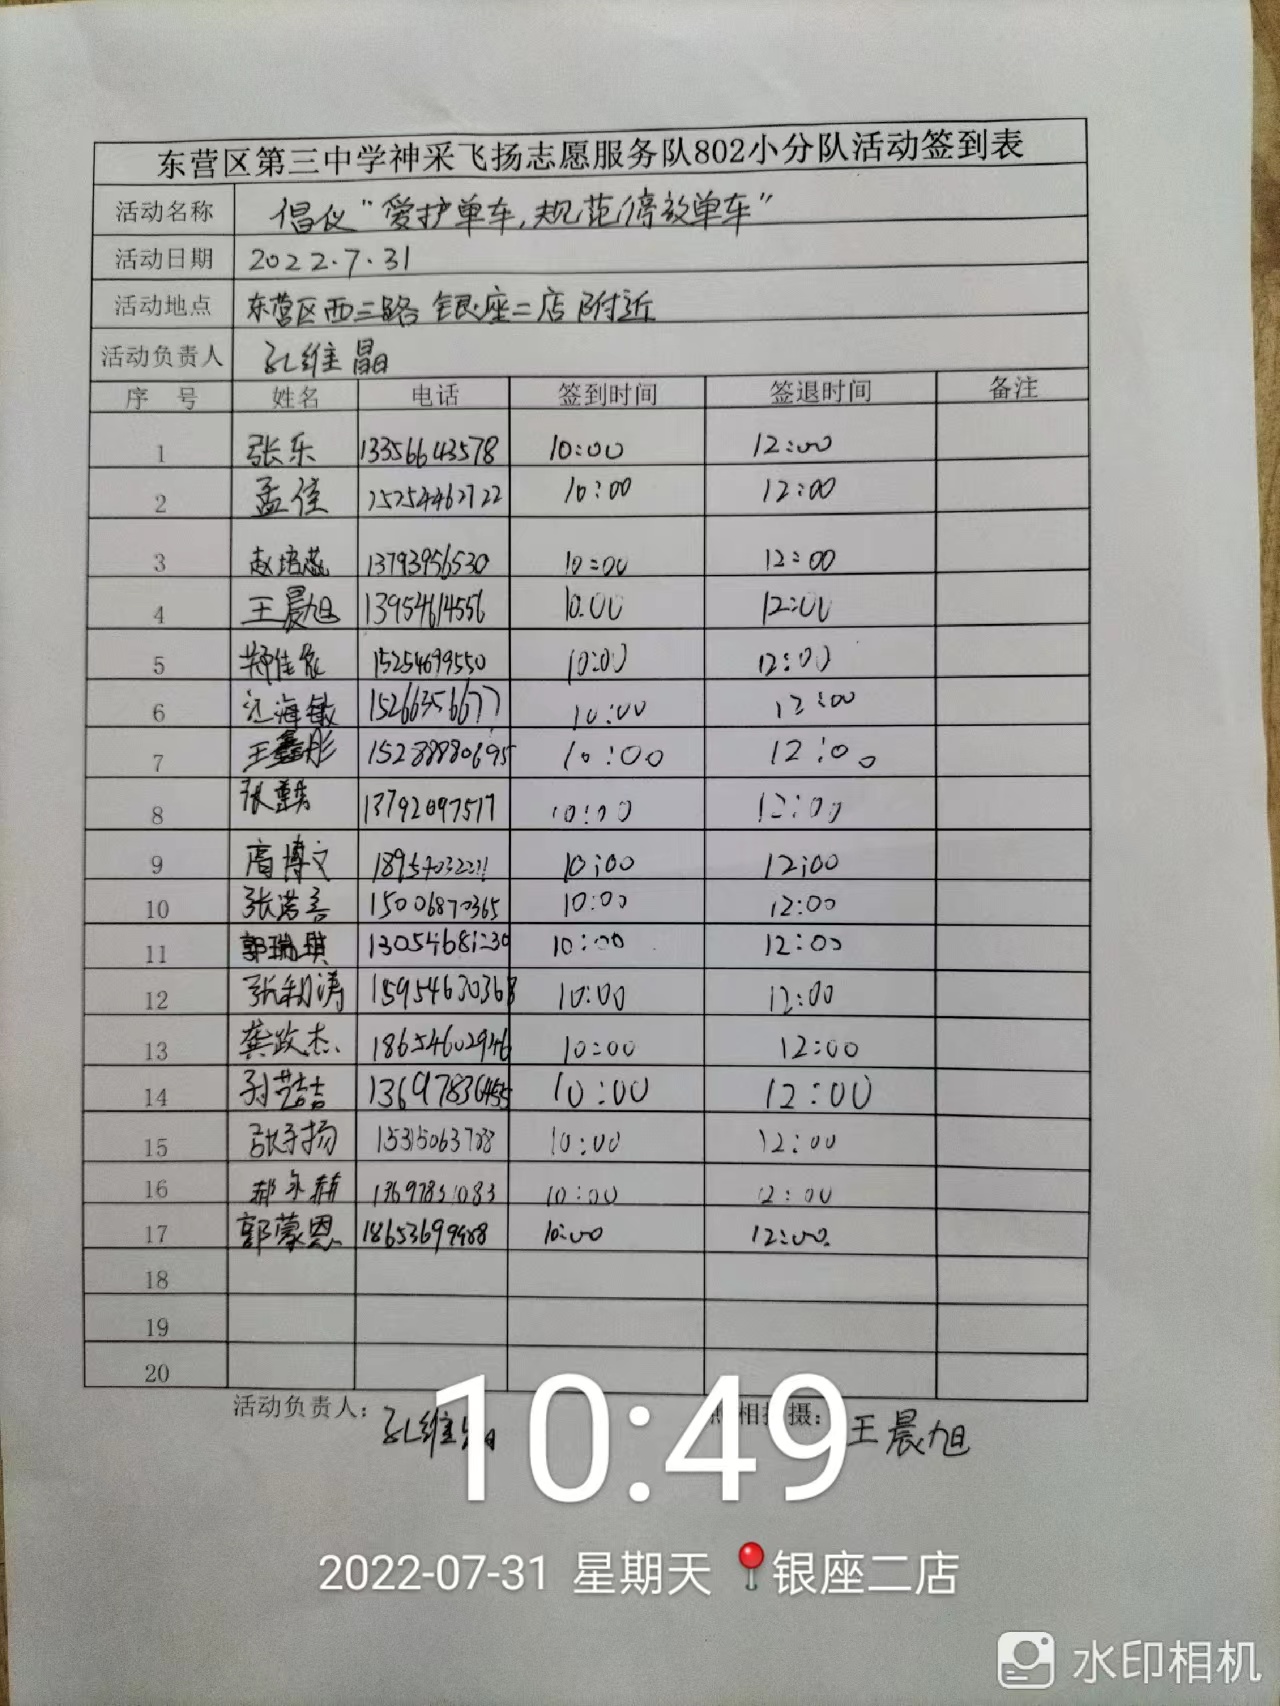 东营区第三中学神采飞扬志愿服务队802小分队活动签到表
活动名称 倡仪“爱护单车,规范停放单车”
活动日期 2022.7.31
活动地点 东营区西三路 银座二店 附近
活动负责人 孔维晶
序号 姓名 电话 签到时间 签退时间 备注
1 张乐 13356643578 10:00 12:00
2 孟佳 10:00 12:00
3 赵培蕊 13793956530 10:00 12:00
4 王晨旭 13954614556 10:00 12:00
5 15254699550 10:00 12:00
6 海敏 15266356677 10:00 12:00
7 王鑫彤 15288880695 10:00 12:00
8 张 13792097517 10:00 12:00
9 博文 10:00 12:00
10 张诺言 15006870365 10:00 12:00
11 郭瑞琪 13054681230 10:00 12:00
12 张翔涛 15954630368 10:00 12:00
13 龚政杰 18654602946 10:00 12:00
14 孙喆 13697836455 10:00 12:00
15 张子扬 10:00 12:00
16 郝 13697851083 10:00 12:00
17 郭蒙恩 10:00 12:00
18
19
20
活动负责人: 孔维晶 照相拍摄: 王晨旭
10:49
2022-07-31 星期天 银座二店
水印相机